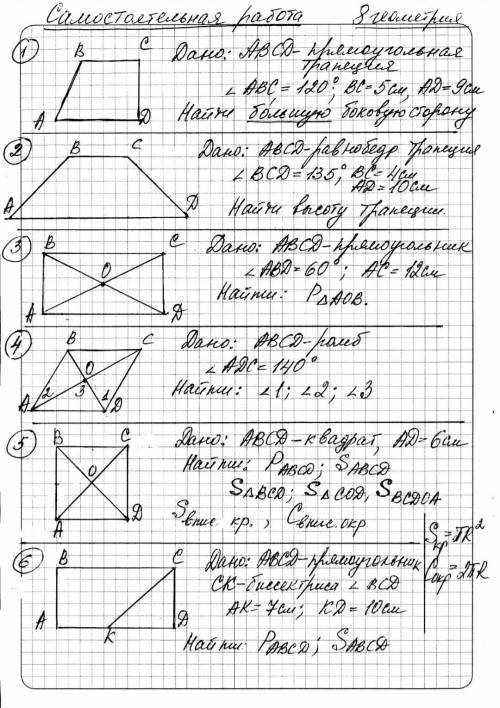 Самостоятельная работа 8 геометрия
1 B C Дано: ABCD - прямоугольная
трапеция
∠ABC = 120°; BC = 5см, AD = 9см
A D Найти бóльшую боковую сторону
2 B C Дано: ABCD - равнобедр трапеция
∠BCD = 135°; BC = 4см
AD = 10см
A D Найти высоту трапеции.
3 B C Дано: ABCD - прямоугольник
O ∠ABD = 60°; AC = 12см
A D Найти: P△AOB.
4 B C Дано: ABCD - ромб
O ∠ADC = 140°
A 2 3 1 D Найти: ∠1; ∠2; ∠3
5 B C Дано: ABCD - квадрат, AD = 6см
Найти: P ABCD; S ABCD
O S△BCD; S△COD, S BCDOA
A D S впис. кр., C впис. окр.
S кр = πR²
C окр = 2πR
6 B C Дано: ABCD - прямоугольник
CK - биссектриса ∠BCD
AK = 7см; KD = 10см
A K D
Найти: P ABCD; S ABCD